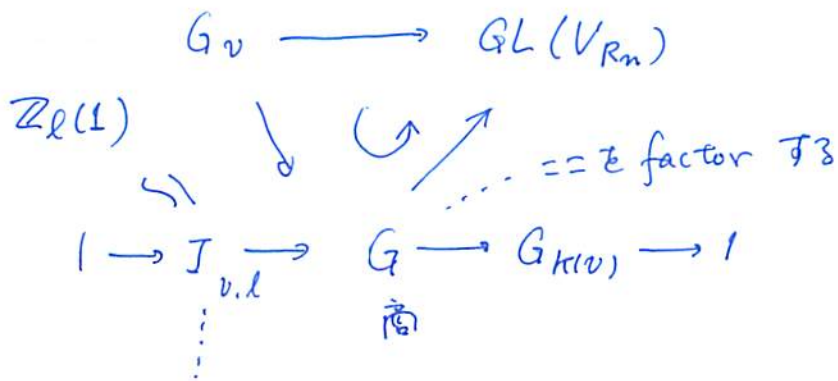 G_v ⟶ GL(V_{Rn})
ℤ_ℓ(1)
ここを factor する
1 → I_{v,ℓ} ⟶ G ⟶ G_{κ(v)} ⟶ 1
商